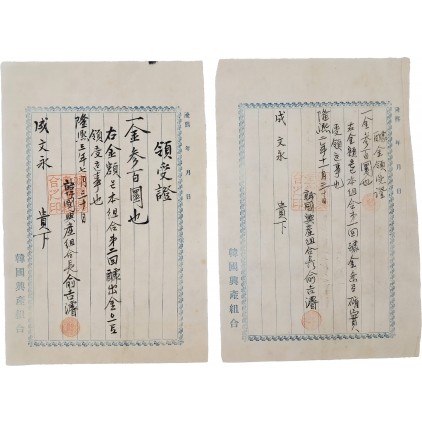 隆熙 年 月 日
領受證
一金參百圜也
右金額은本組合第一回醵出金으로
領受홈事也
隆熙三年七月三十日
韓國興産組合長兪吉濬
成文永 貴下
韓國興產組合
隆熙 年 月 日
醵金領受證
一金參百圜也
右金額은本組合第一回醵金条로確實
受領홈事
隆熙二年十一月三十日
韓國興産組合長兪吉濬
成文永 貴下
韓國興產組合